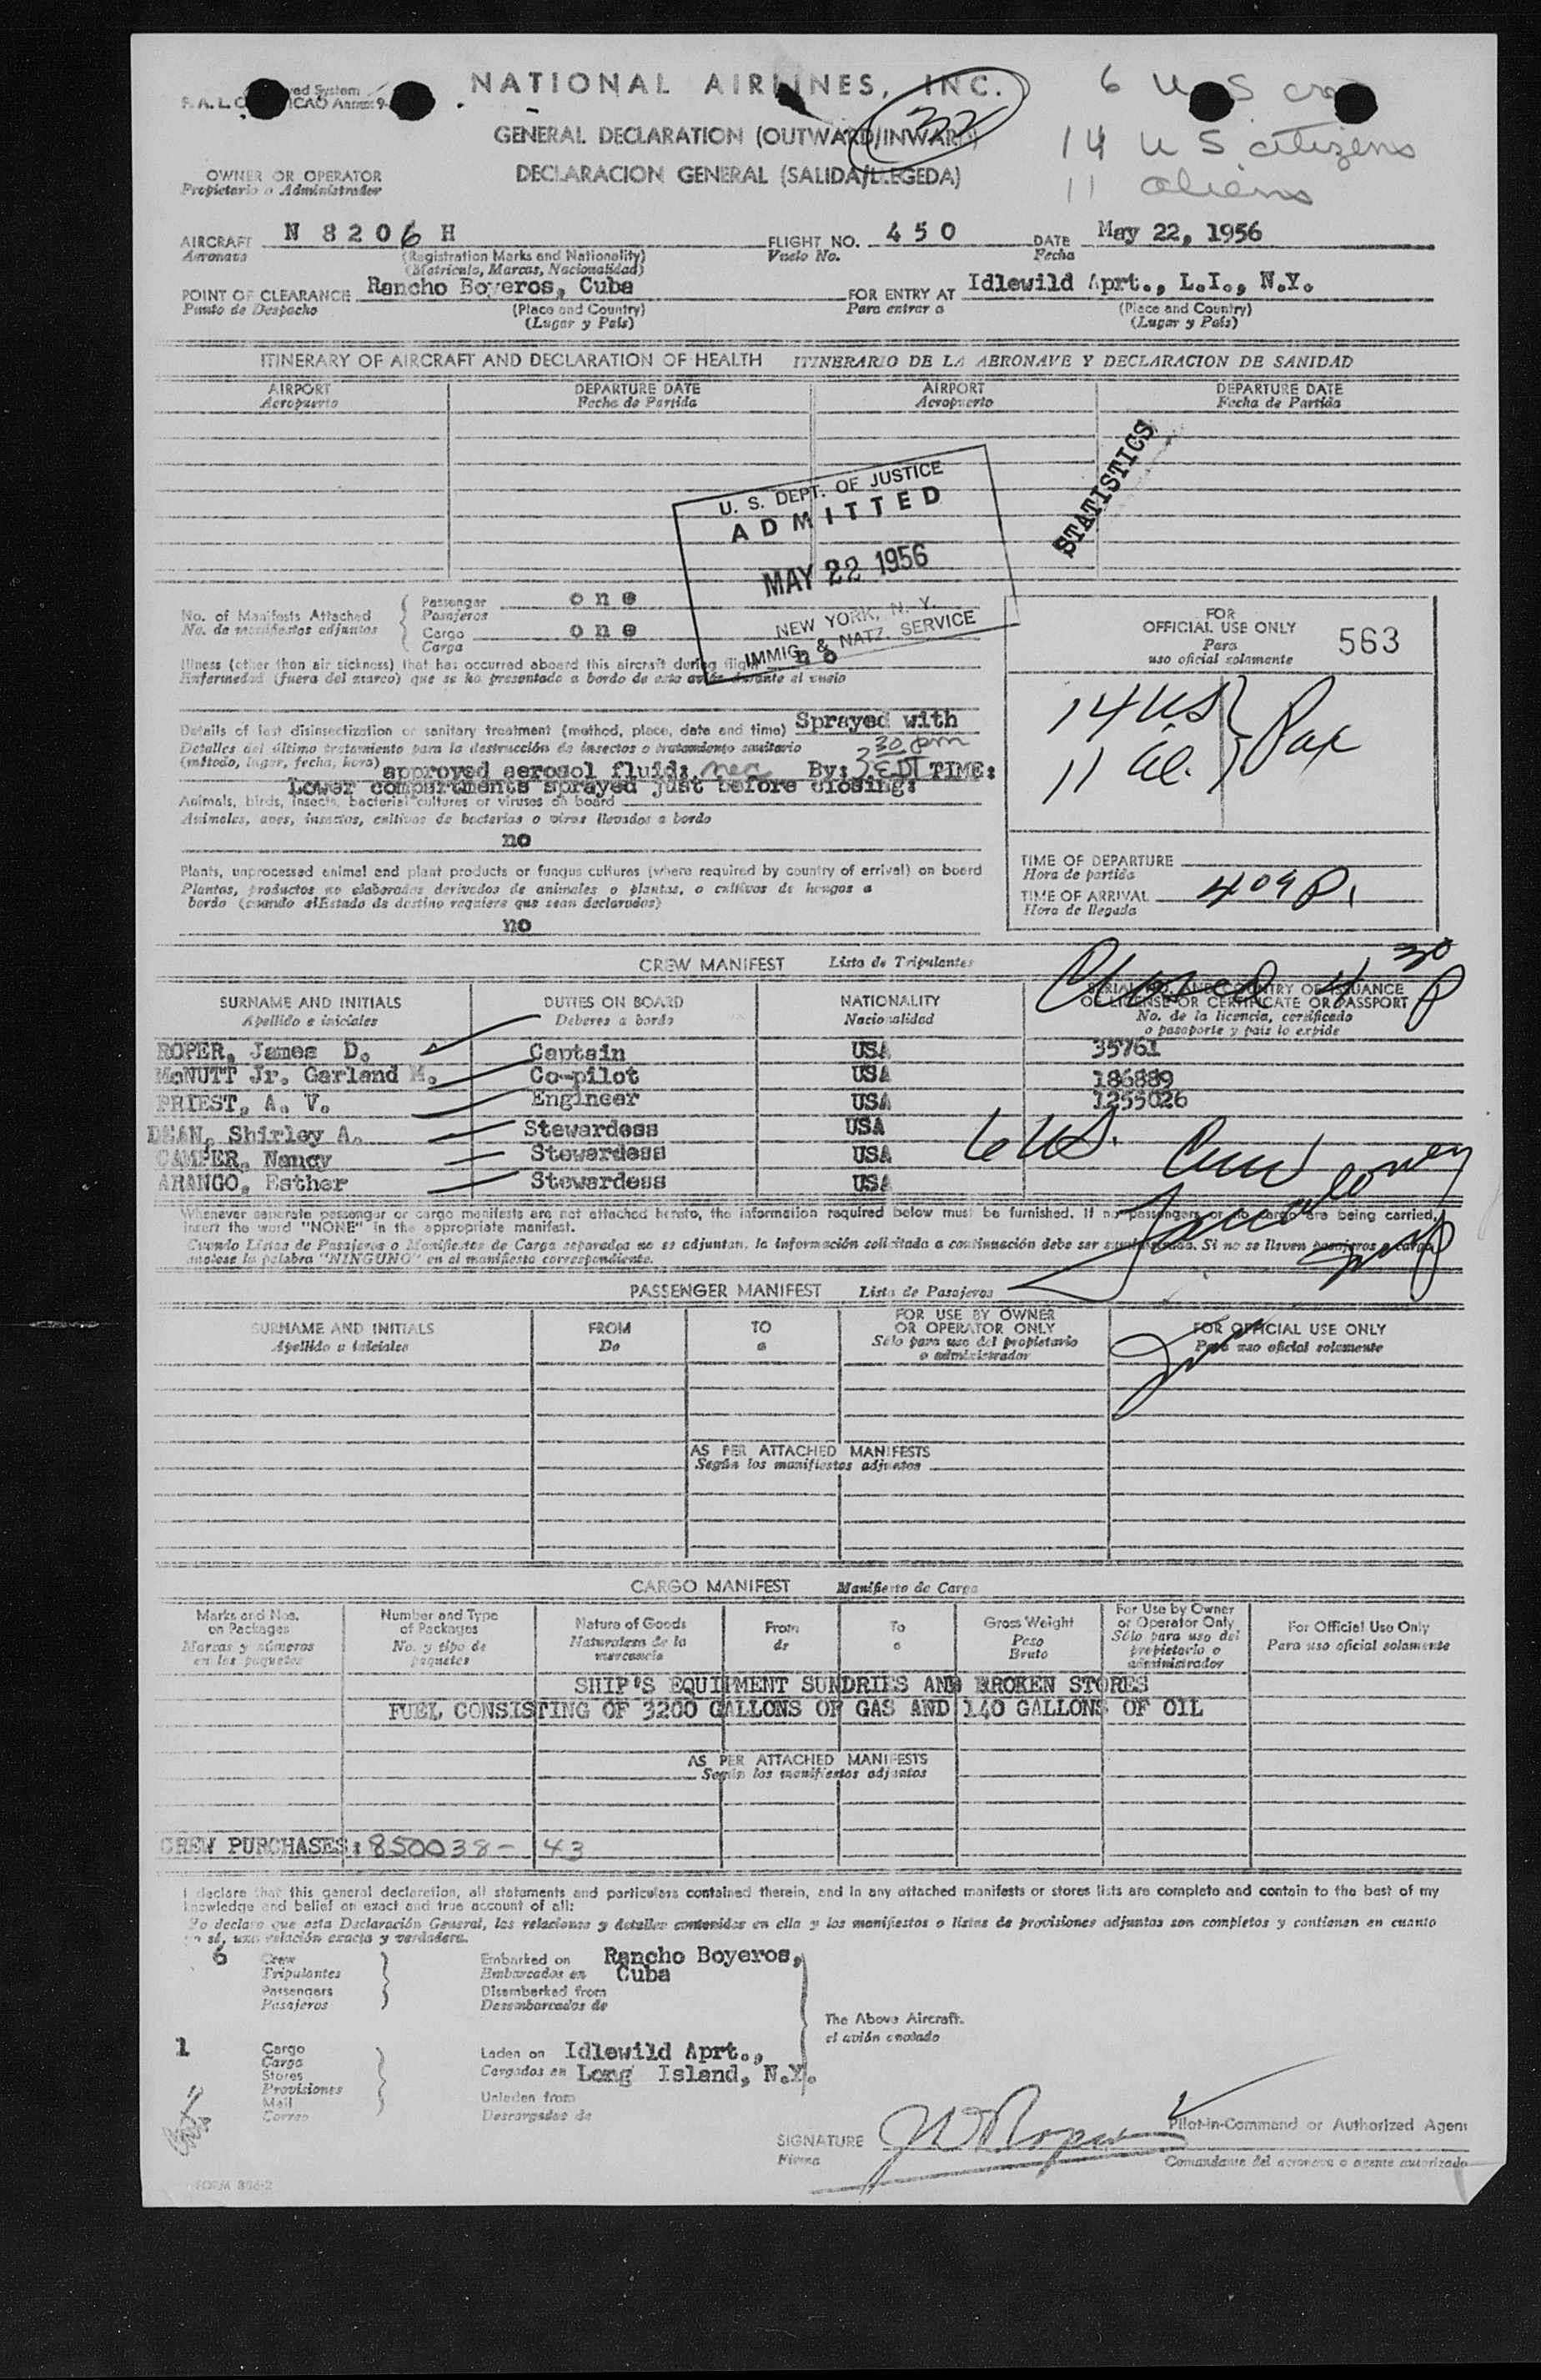 NATIONAL AIRLINES, INC.
6 U S crew
32
F. A. L. ICAO Annex 9
GENERAL DECLARATION (OUTWARD/INWARD)
14 U S citizens
DECLARACION GENERAL (SALIDA/LLEGEDA)
11 aliens
OWNER OR OPERATOR
Propietario o Administrador
AIRCRAFT N 8206 H FLIGHT NO. 450 DATE May 22, 1956
Aeronave (Registration Marks and Nationality) Vuelo No. Fecha
(Matricula, Marcas, Nacionalidad)
POINT OF CLEARANCE Rancho Boyeros, Cuba FOR ENTRY AT Idlewild Aprt., L.I., N.Y.
Punto de Despacho (Place and Country) Para entrar a (Place and Country)
(Lugar y País) (Lugar y País)
ITINERARY OF AIRCRAFT AND DECLARATION OF HEALTH ITINERARIO DE LA AERONAVE Y DECLARACION DE SANIDAD
AIRPORT DEPARTURE DATE AIRPORT DEPARTURE DATE
Aeropuerto Fecha de Partida Aeropuerto Fecha de Partida
STATISTICS
U. S. DEPT. OF JUSTICE
ADMITTED
MAY 22 1956
NEW YORK, N. Y.
IMMIG. & NATZ. SERVICE
No. of Manifests Attached Passenger one
No. de manifiestos adjuntos Pasajeros
Cargo one
Carga
Illness (other than air sickness) that has occurred aboard this aircraft during flight no
Enfermedad (fuera del mareo) que se ha presentado a bordo de este avión durante el vuelo
FOR
OFFICIAL USE ONLY 563
Para
uso oficial solamente
14 US
11 al. Pax
Details of last disinsectization or sanitary treatment (method, place, date and time) Sprayed with
Detalles del último tratamiento para la destrucción de insectos o tratamiento sanitario 30 pm
(método, lugar, fecha, hora) approved aerosol fluid; By: 3 EDT TIME:
Lower compartments sprayed just before closing:
Animals, birds, insects, bacterial cultures or viruses on board
Animales, aves, insectos, cultivos de bacterias o virus llevados a bordo
no
Plants, unprocessed animal and plant products or fungus cultures (where required by country of arrival) on board
Plantas, productos no elaborados derivados de animales o plantas, o cultivos de hongos a
bordo (cuando elEstado de destino requiera que sean declarados)
no
TIME OF DEPARTURE
Hora de partida
TIME OF ARRIVAL 409 P.
Hora de llegada
CREW MANIFEST Lista de Tripulantes
Closed 4 30 P
SURNAME AND INITIALS DUTIES ON BOARD NATIONALITY SERIAL NO. AND COUNTRY OF ISSUANCE
OF LICENSE OR CERTIFICATE OR PASSPORT
Apellido e iniciales Deberes a bordo Nacionalidad No. de la licencia, certificado
o pasaporte y país lo expide
ROPER, James D. Captain USA 35761
McNUTT Jr. Garland M. Co-pilot USA 186889
PRIEST, A. V. Engineer USA 1255026
DEAN, Shirley A. Stewardess USA
CAMPER, Nancy Stewardess USA
ARANGO, Esther Stewardess USA
6 US. Crew
Whenever separate passenger or cargo manifests are not attached hereto, the information required below must be furnished. If no passengers or no cargo are being carried,
insert the word "NONE" in the appropriate manifest.
Cuando Listas de Pasajeros o Manifiestos de Carga separados no se adjuntan, la información solicitada a continuación debe ser suministrada. Si no se llevan pasajeros o carga,
anótese la palabra "NINGUNO" en el manifiesto correspondiente.
PASSENGER MANIFEST Lista de Pasajeros
SURNAME AND INITIALS FROM TO FOR USE BY OWNER
OR OPERATOR ONLY FOR OFFICIAL USE ONLY
Apellido e iniciales De a Sólo para uso del propietario
o administrador Para uso oficial solamente
AS PER ATTACHED MANIFESTS
Según los manifiestos adjuntos
CARGO MANIFEST Manifiesto de Carga
Marks and Nos.
on Packages
Marcas y números
en los paquetes
Number and Type
of Packages
No. y tipo de
paquetes
Nature of Goods
Naturaleza de la
mercancía
From
de
To
a
Gross Weight
Peso
Bruto
For Use by Owner
or Operator Only
Sólo para uso del
propietario o
administrador
For Official Use Only
Para uso oficial solamente
SHIP'S EQUIPMENT SUNDRIES AND BROKEN STORES
FUEL CONSISTING OF 3200 GALLONS OF GAS AND 140 GALLONS OF OIL
AS PER ATTACHED MANIFESTS
Según los manifiestos adjuntos
CREW PURCHASES: 850038- 43
I declare that this general declaration, all statements and particulars contained therein, and in any attached manifests or stores lists are complete and contain to the best of my
knowledge and belief an exact and true account of all:
Yo declaro que esta Declaración General, las relaciones y detalles contenidos en ella y los manifiestos o listas de provisiones adjuntos son completos y contienen en cuanto
yo sé, una relación exacta y verdadera.
6 Crew Embarked on Rancho Boyeros,
Tripulantes Embarcados en Cuba
Passengers Disembarked from
Pasajeros Desembarcados de
The Above Aircraft.
el avión
1 Cargo Laden on Idlewild Aprt.,
Carga
Stores Cargados en Long Island, N.Y.
Provisiones
Mail Unladen from
Correo Descargados de
SIGNATURE Pilot-in-Command or Authorized Agent
Firma Comandante del aeronave o agente autorizado
FORM 886-2